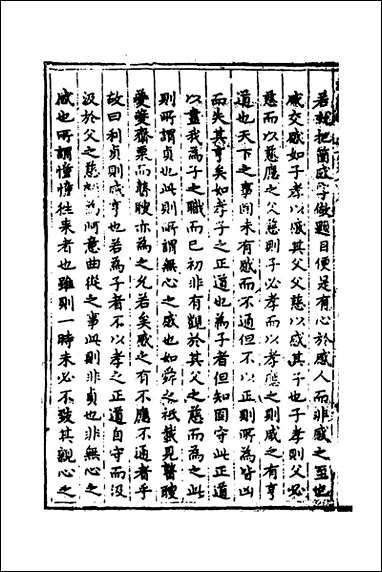 若就把箇感字做題目便是有心於感人而非感之至也
感交感如子孝以感其父父慈以感其子也子孝則父必
慈而以慈應之父慈則子必孝而以孝應之則感之有亨
道也天下之事固未有感而不通但不以正則所為皆凶
而失其亨矣如孝子之正道也為子者但知固守此正道
以盡我為子之職而已初非有觀於其父之慈而為之此
則所謂貞也此則所謂無心之感也如舜之祗載見瞽瞍
夔夔齋栗而瞽瞍亦為之允若矣感之有不應不通者乎
故曰利貞則咸亨也若為子者不以孝之正道自守而汲
汲於父之慈為阿意曲從之事此則非貞也非無心之
感也所謂憧憧往來者也雖則一時未必不致其親心之